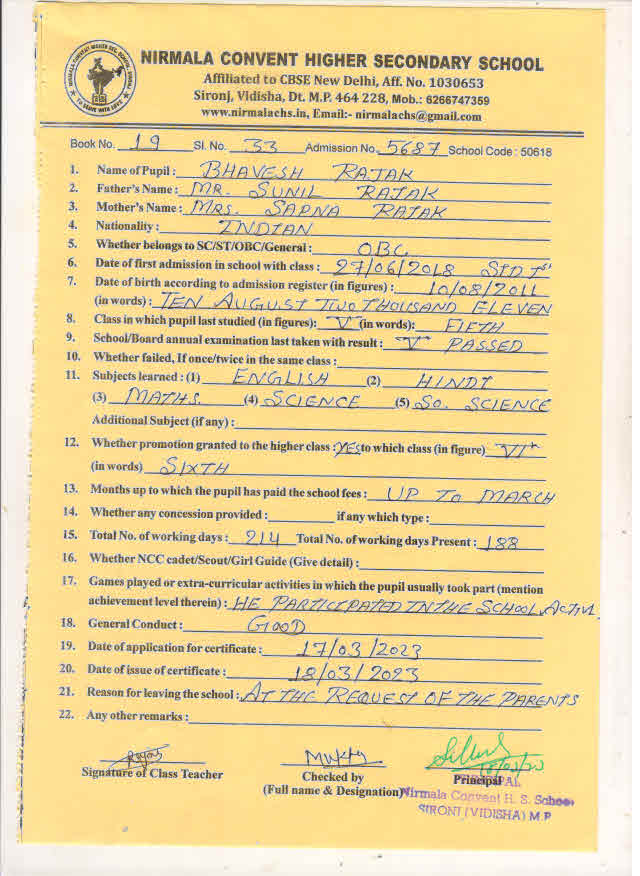 NIRMALA CONVENT HIGHER SECONDARY SCHOOL
Affiliated to CBSE New Delhi, Aff. No. 1030653
Sironj, Vidisha, Dt. M.P. 464 228, Mob.: 6266747359
www.nirmalachs.in, Email:- nirmalachs@gmail.com
Book No. 19 Sl. No. 33 Admission No. 5687 School Code : 50618
1. Name of Pupil : BHAVESH RAJAK
2. Father's Name : MR. SUNIL RAJAK
3. Mother's Name : MRS. SAPNA RAJAK
4. Nationality : INDIAN
5. Whether belongs to SC/ST/OBC/General : OBC
6. Date of first admission in school with class : 27/06/2018 STD Ist
7. Date of birth according to admission register (in figures) : 10/08/2011
(in words) : TEN AUGUST TWO THOUSAND ELEVEN
8. Class in which pupil last studied (in figures): "V" (in words): FIFTH
9. School/Board annual examination last taken with result : "V" PASSED
10. Whether failed, If once/twice in the same class :
11. Subjects learned : (1) ENGLISH (2) HINDI
(3) MATHS. (4) SCIENCE (5) SO. SCIENCE
Additional Subject (if any) :
12. Whether promotion granted to the higher class : YES to which class (in figure) VIth
(in words) SIXTH
13. Months up to which the pupil has paid the school fees : UP TO MARCH
14. Whether any concession provided : if any which type :
15. Total No. of working days : 214 Total No. of working days Present : 188
16. Whether NCC cadet/Scout/Girl Guide (Give detail) :
17. Games played or extra-curricular activities in which the pupil usually took part (mention
achievement level therein) : HE PARTICIPATED IN THE SCHOOL ACTIVI
18. General Conduct : GOOD
19. Date of application for certificate : 17/03/2023
20. Date of issue of certificate : 18/03/2023
21. Reason for leaving the school : AT THE REQUEST OF THE PARENTS
22. Any other remarks :
Signature of Class Teacher Checked by Principal
(Full name & Designation)
PRINCIPAL
Nirmala Convent H. S. School
SIRONJ (VIDISHA) M.P